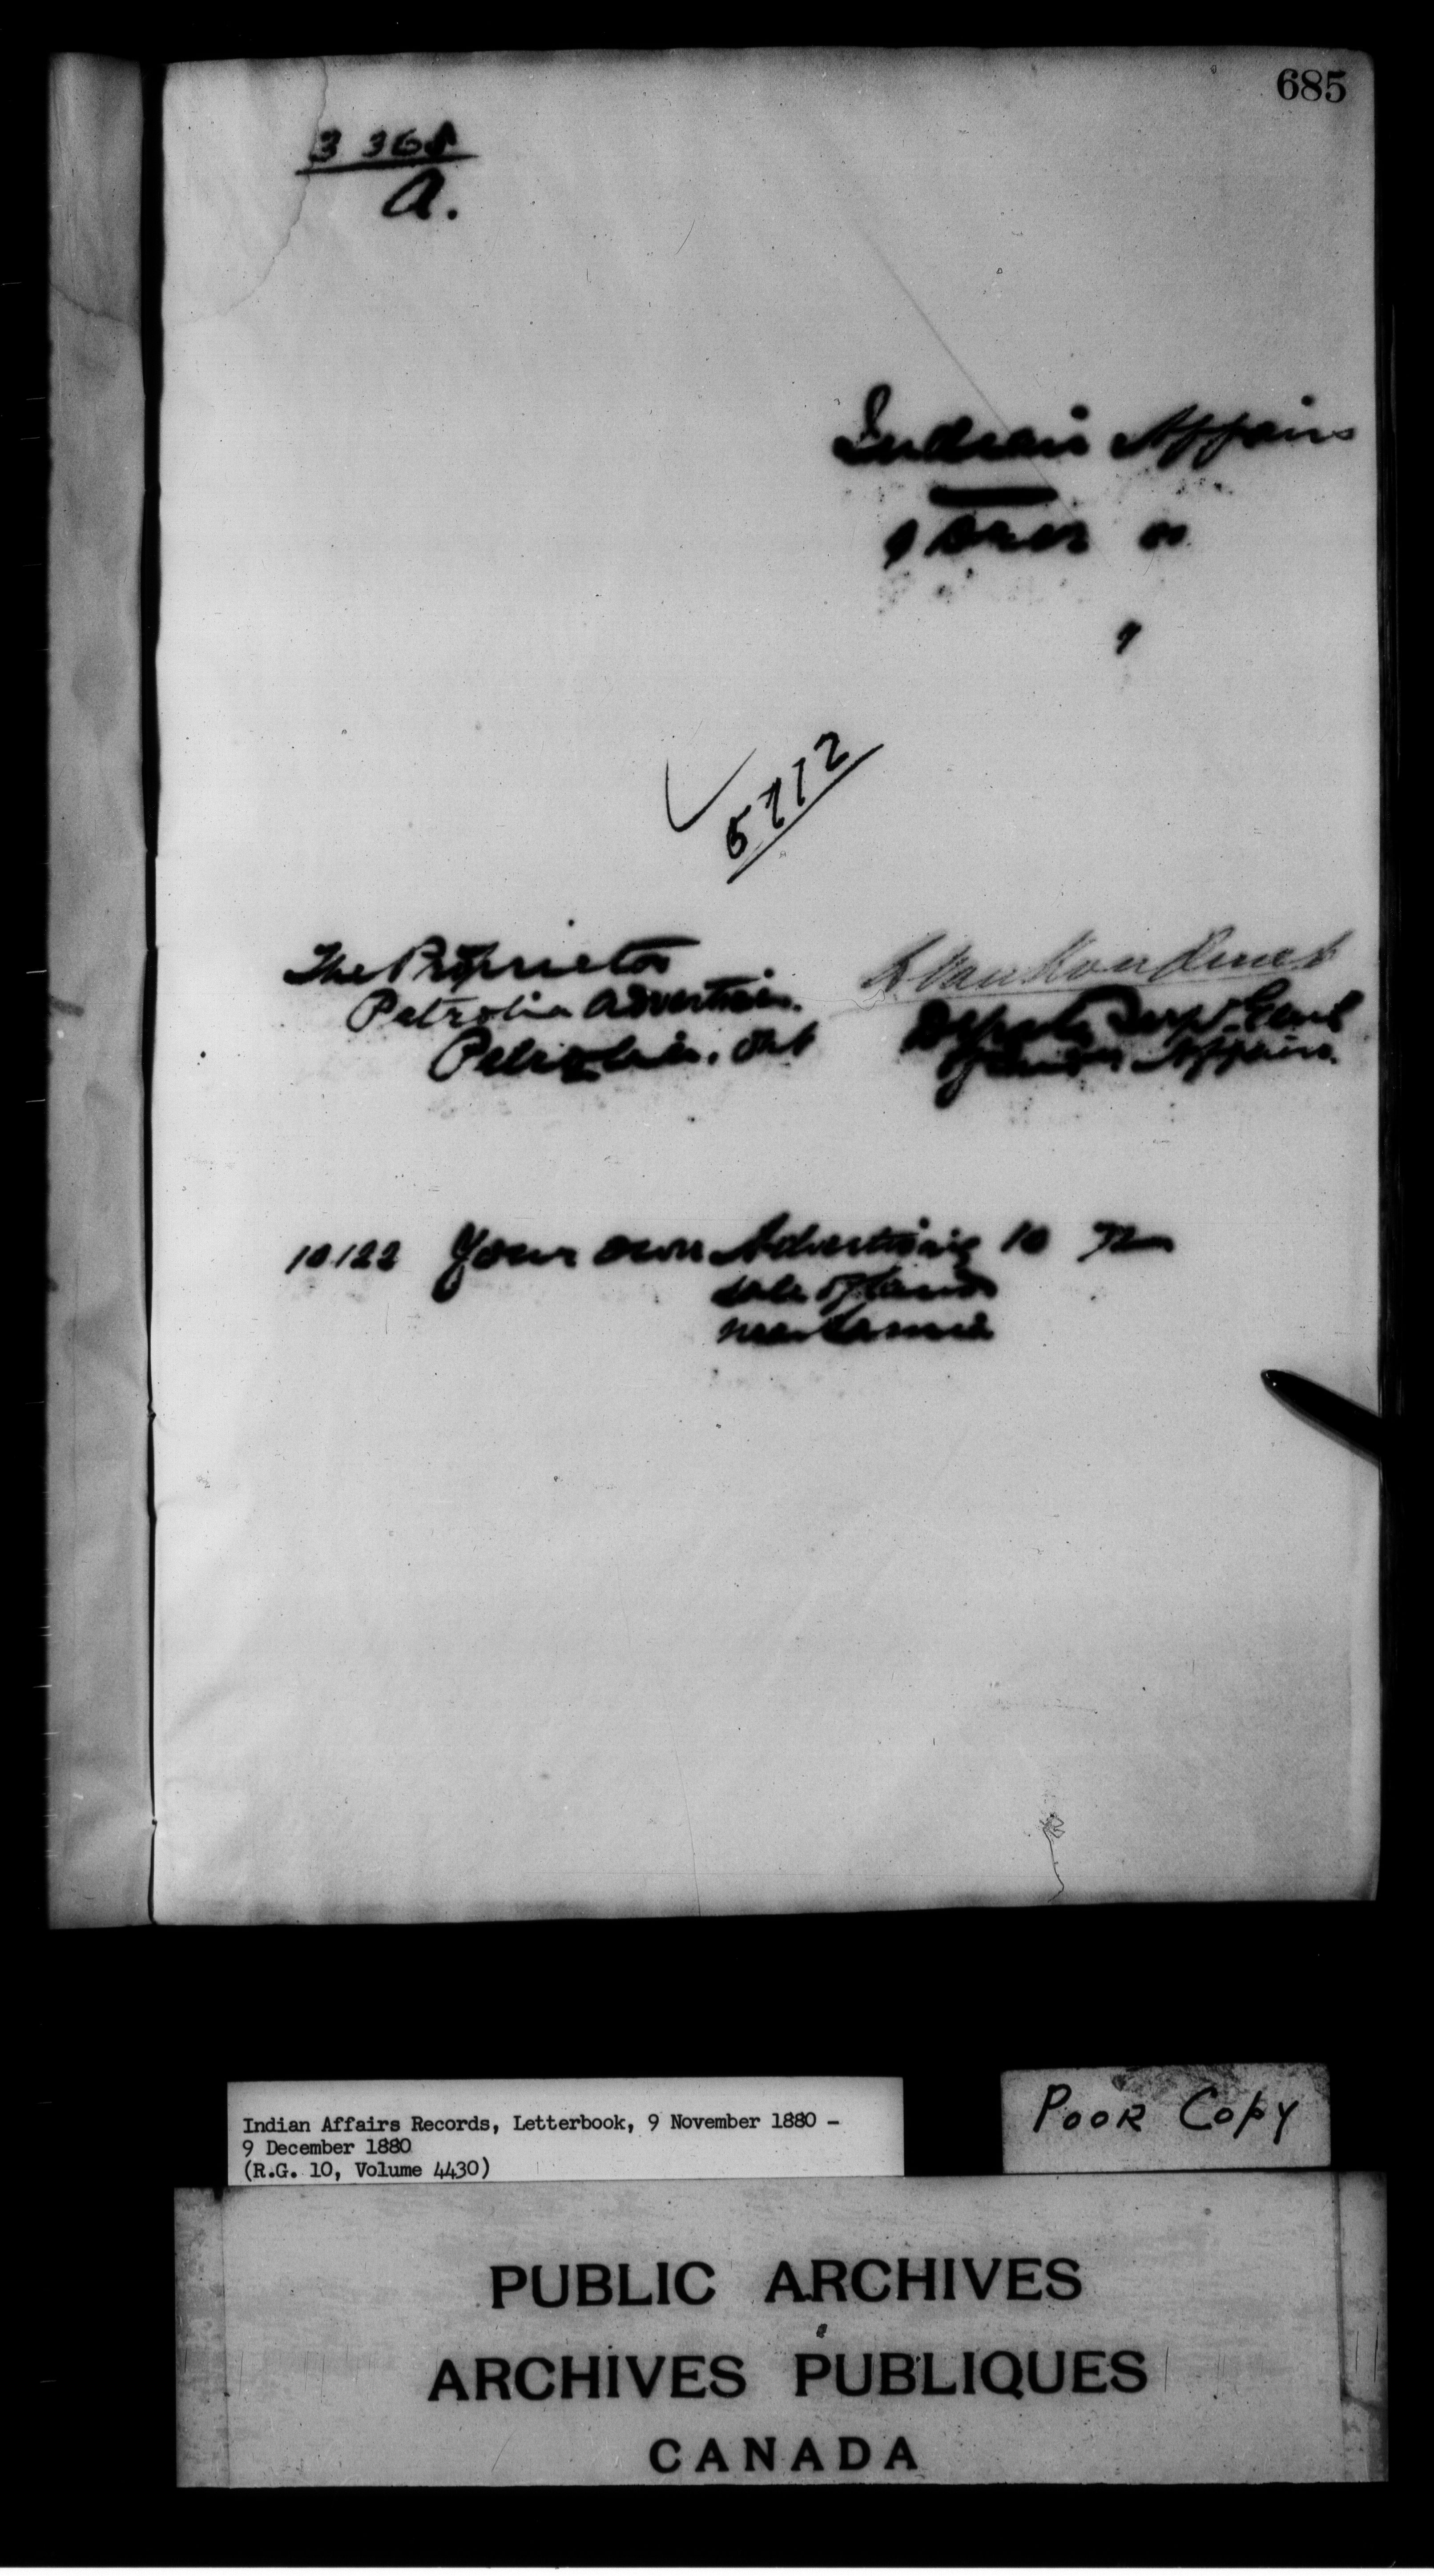 685
3 368
A.
Indian Affairs
9 Decr 80
9
5712
The Proprietor
Petrolia Advertiser.
Petrolia. Ont
L. VanKoughnet
Deputy Supt. Genl
of Indian Affairs.
10122 Your own Advertising 10 72
sale of lands
near Sarnia
Indian Affairs Records, Letterbook, 9 November 1880 -
9 December 1880
(R.G. 10, Volume 4430)
POOR COPY
PUBLIC ARCHIVES
ARCHIVES PUBLIQUES
CANADA